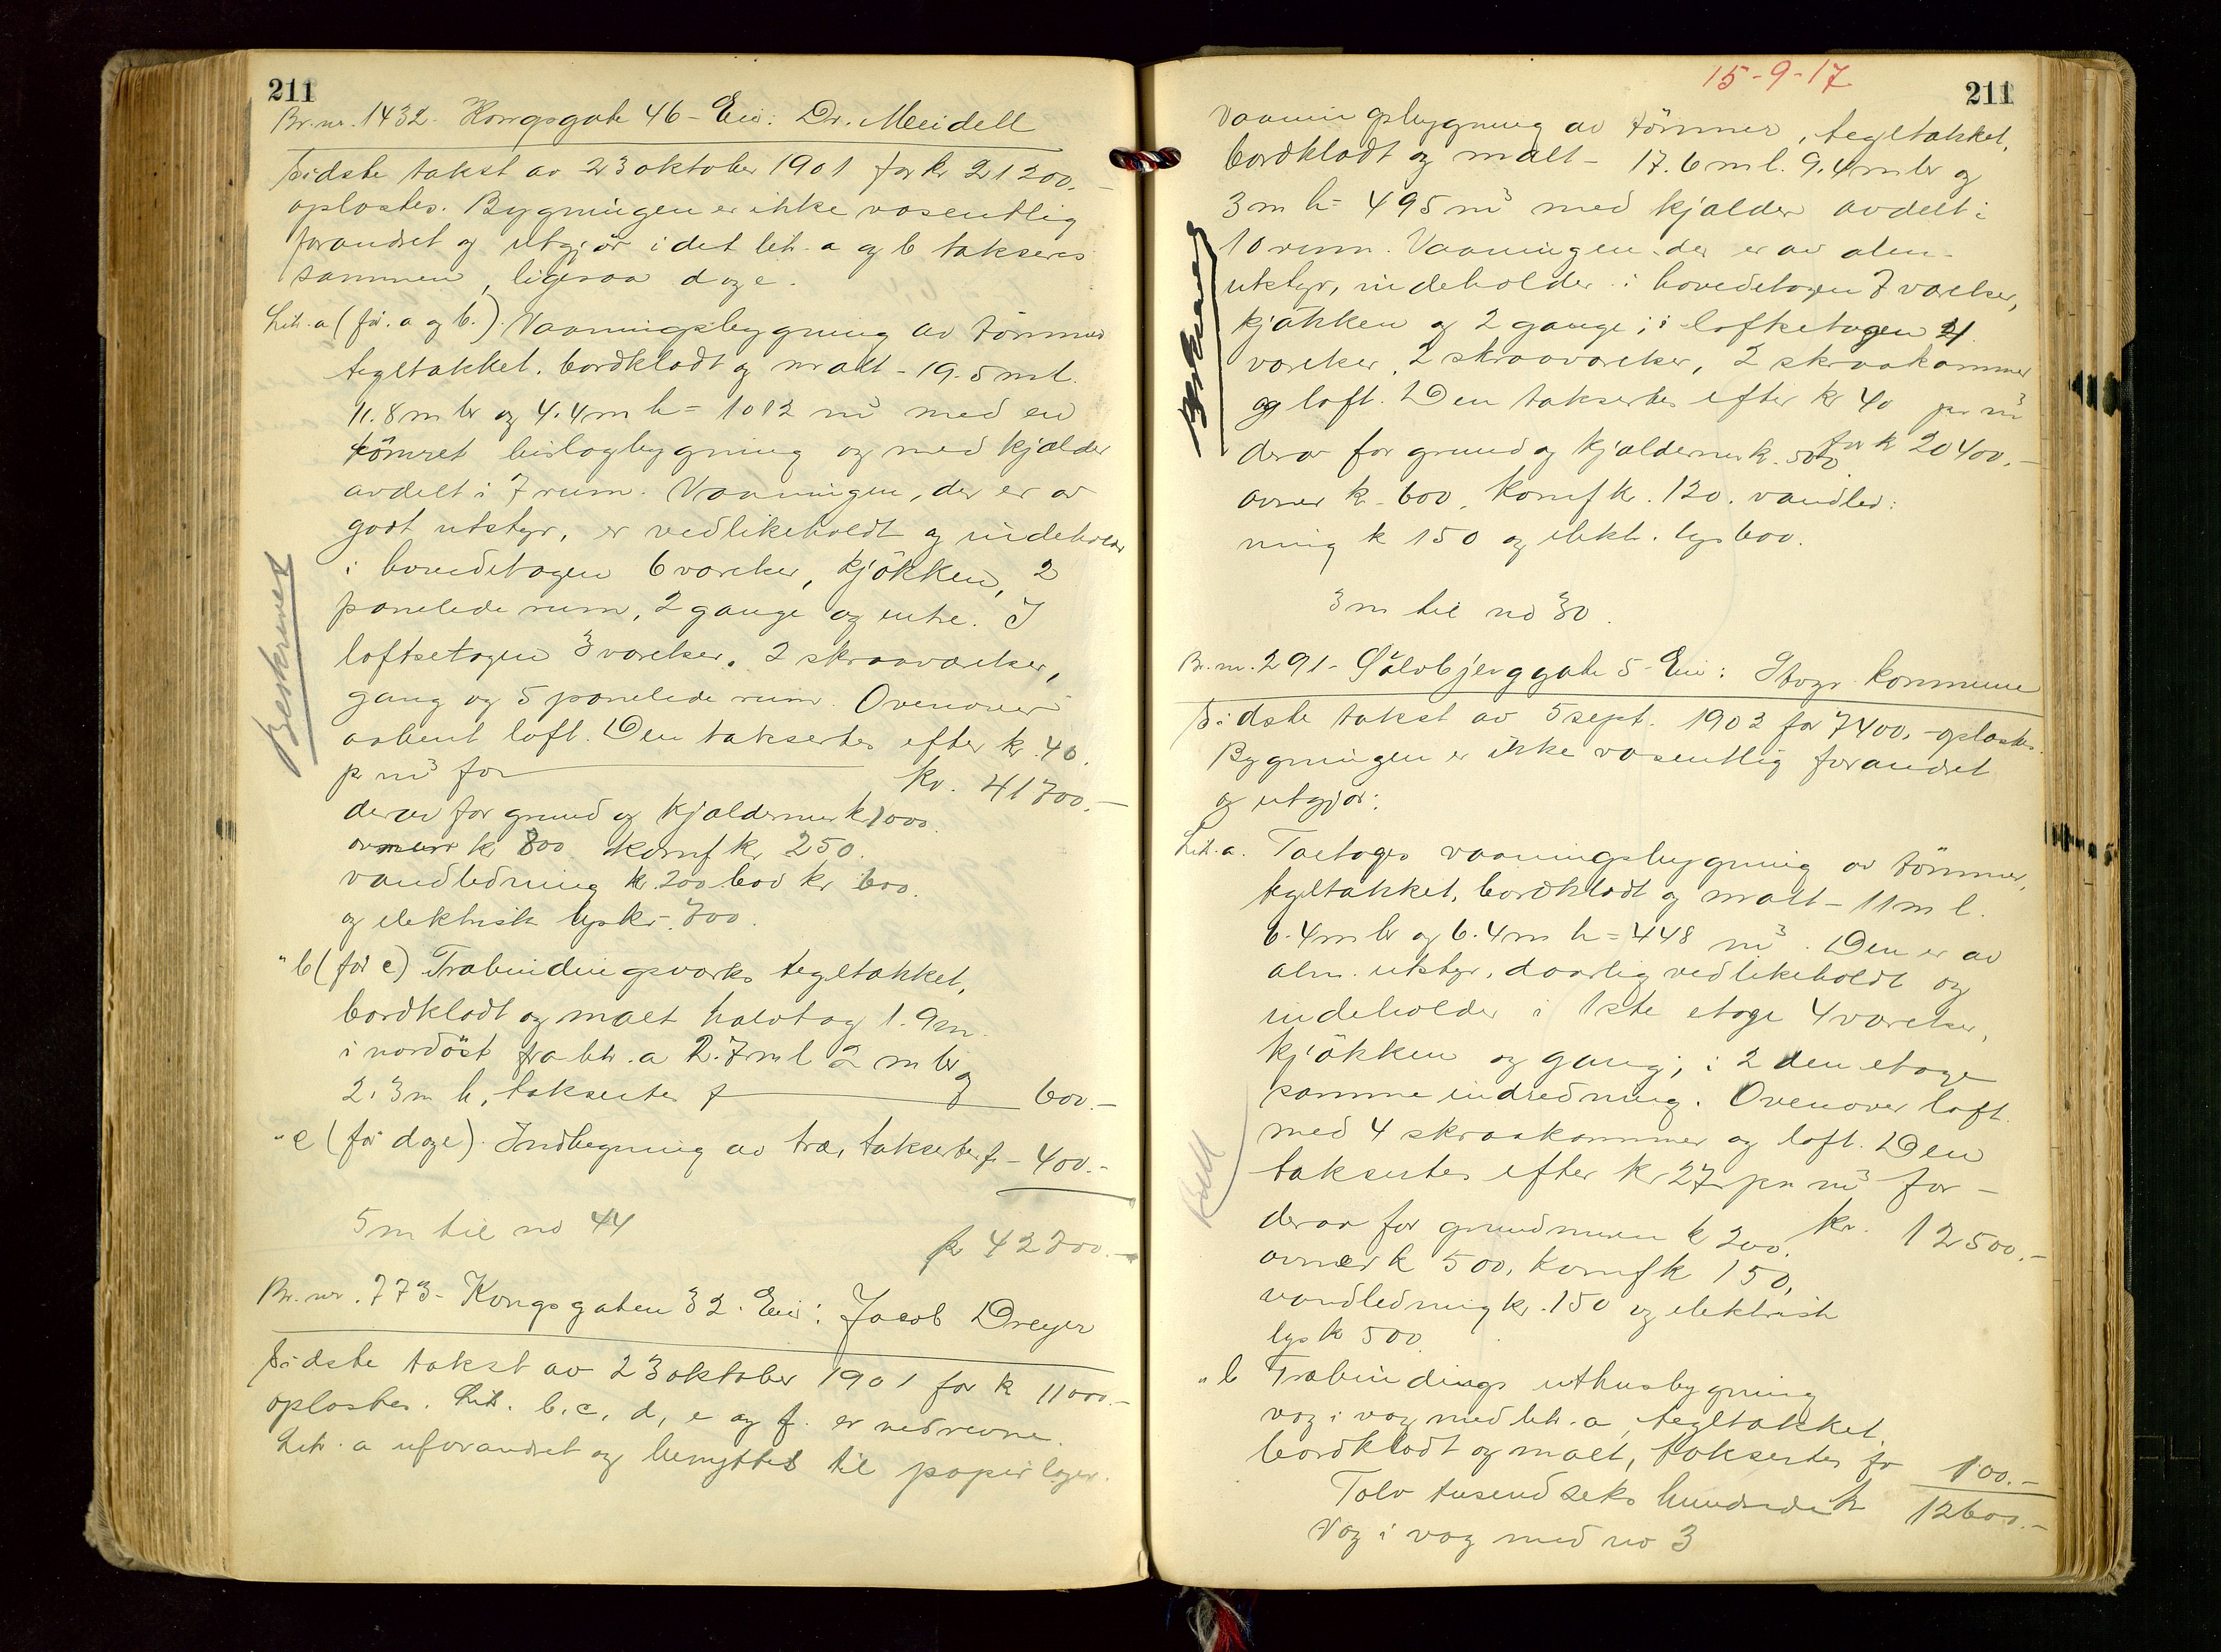 211
Br.nr. 1432. Kongsgate 46 - Eier: Dr. Meidell
Sidste takst av 23 oktober 1901 for kr 21200.-
oplæstes. Bygningen er ikke væsentlig
forandret og utgjør idet lit. a og b takseres
sammen, ligesaa d og e.
Lit. a (før a og b.) Vaaningsbygning av tømmer
tegltækket, bordklædt og malt - 19.5 m l.
11.8 m br og 4.4 m h = 1012 m³ med en
tømret bislagbygning og med kjælder
avdelt i 7 rum. Vaaningen, der er av
godt utstyr, er vedlikeholdt og indeholder
i hovedetagen 6 værelser, kjøkken, 2
panelede rum, 2 gange og entre. I
loftsetagen 3 værelser, 2 skraaværelser,
gang og 5 panelede rum. Ovenover
aabent loft. Den taksertes efter kr. 40.
pr m³ for Kr. 41700.-
derav for grund og kjældermur k 1000.
ovner kr 800. komf kr 250.
vandledning kr. 200 bad kr 600.
og elektrisk lys kr. 700.
Beskrevet
" b (før c) Træbindingsverks tegltækket,
bordklædt og malt halvtag 1.9 m.
i nordøst fra lit. a 2.7 m l 2 m br og
2.3 m h, taksertes f 600.-
" c (før d og e). Indbygning av træ, taksertes fr - 400.-
5 m til no 44
kr 42700.-
Br. nr. 773 - Kongsgaten 32. Eier: Jacob Dreyer
Sidste takst av 23 oktober 1901 for k 11000.-
oplæstes. Lit. b, c, d, e og f. er nedrevne.
Lit. a uforandret og benyttet til papirlager.
15-9-17
211
Vaaningsbygning av tømmer, tegltækket,
bordklædt og malt - 17.6 m l. 9.4 m br og
3 m h = 495 m³ med kjælder avdelt i
10 rum. Vaaningen, der er av alm.
utstyr, indeholder i hovedetagen 7 værelser,
kjøkken og 2 gange; i loftsetagen 4
værelser, 2 skraaværelser, 2 skraakammer
og loft. Den taksertes efter kr 40 pr m³
for k 20400.-
derav for grund og kjældermur k. 500.
ovner k. 600, Komf kr. 120. vandled:
ning k 150 og elekt. lys 600.
Beskrevet
3 m til no 30.
Br. nr. 291 - Sølvbjerggate 5 - Eier: Stvgr kommune
Sidste takst av 5 sept. 1902 for 7400.- oplæstes.
Bygningen er ikke væsentlig forandret
og utgjør:
Lit. a. Toetages vaaningsbygning av tømmer,
tegltækket, bordklædt og malt - 11 m l.
6.4 m br og 6.4 m h = 448 m³. Den er av
alm. utstyr, daarlig vedlikeholdt og
indeholder i 1ste etage 4 værelser,
kjøkken og gang; i 2den etage
samme indredning. Ovenover loft
med 4 skraakammer og loft. Den
taksertes efter kr 27 pr m³ for -
kr. 12500.-
derav for grundmuren k 200.
ovner k 500, komf k 150,
vandledning kr. 150 og elektrisk
lys k 500.
" b Træbindings uthusbygning
væg i væg med lit. a, tegltækket,
bordklædt og malt, taksertes fr 100.-
Tolv tusend seks hundrede k 12600.-
Væg i væg med no 3